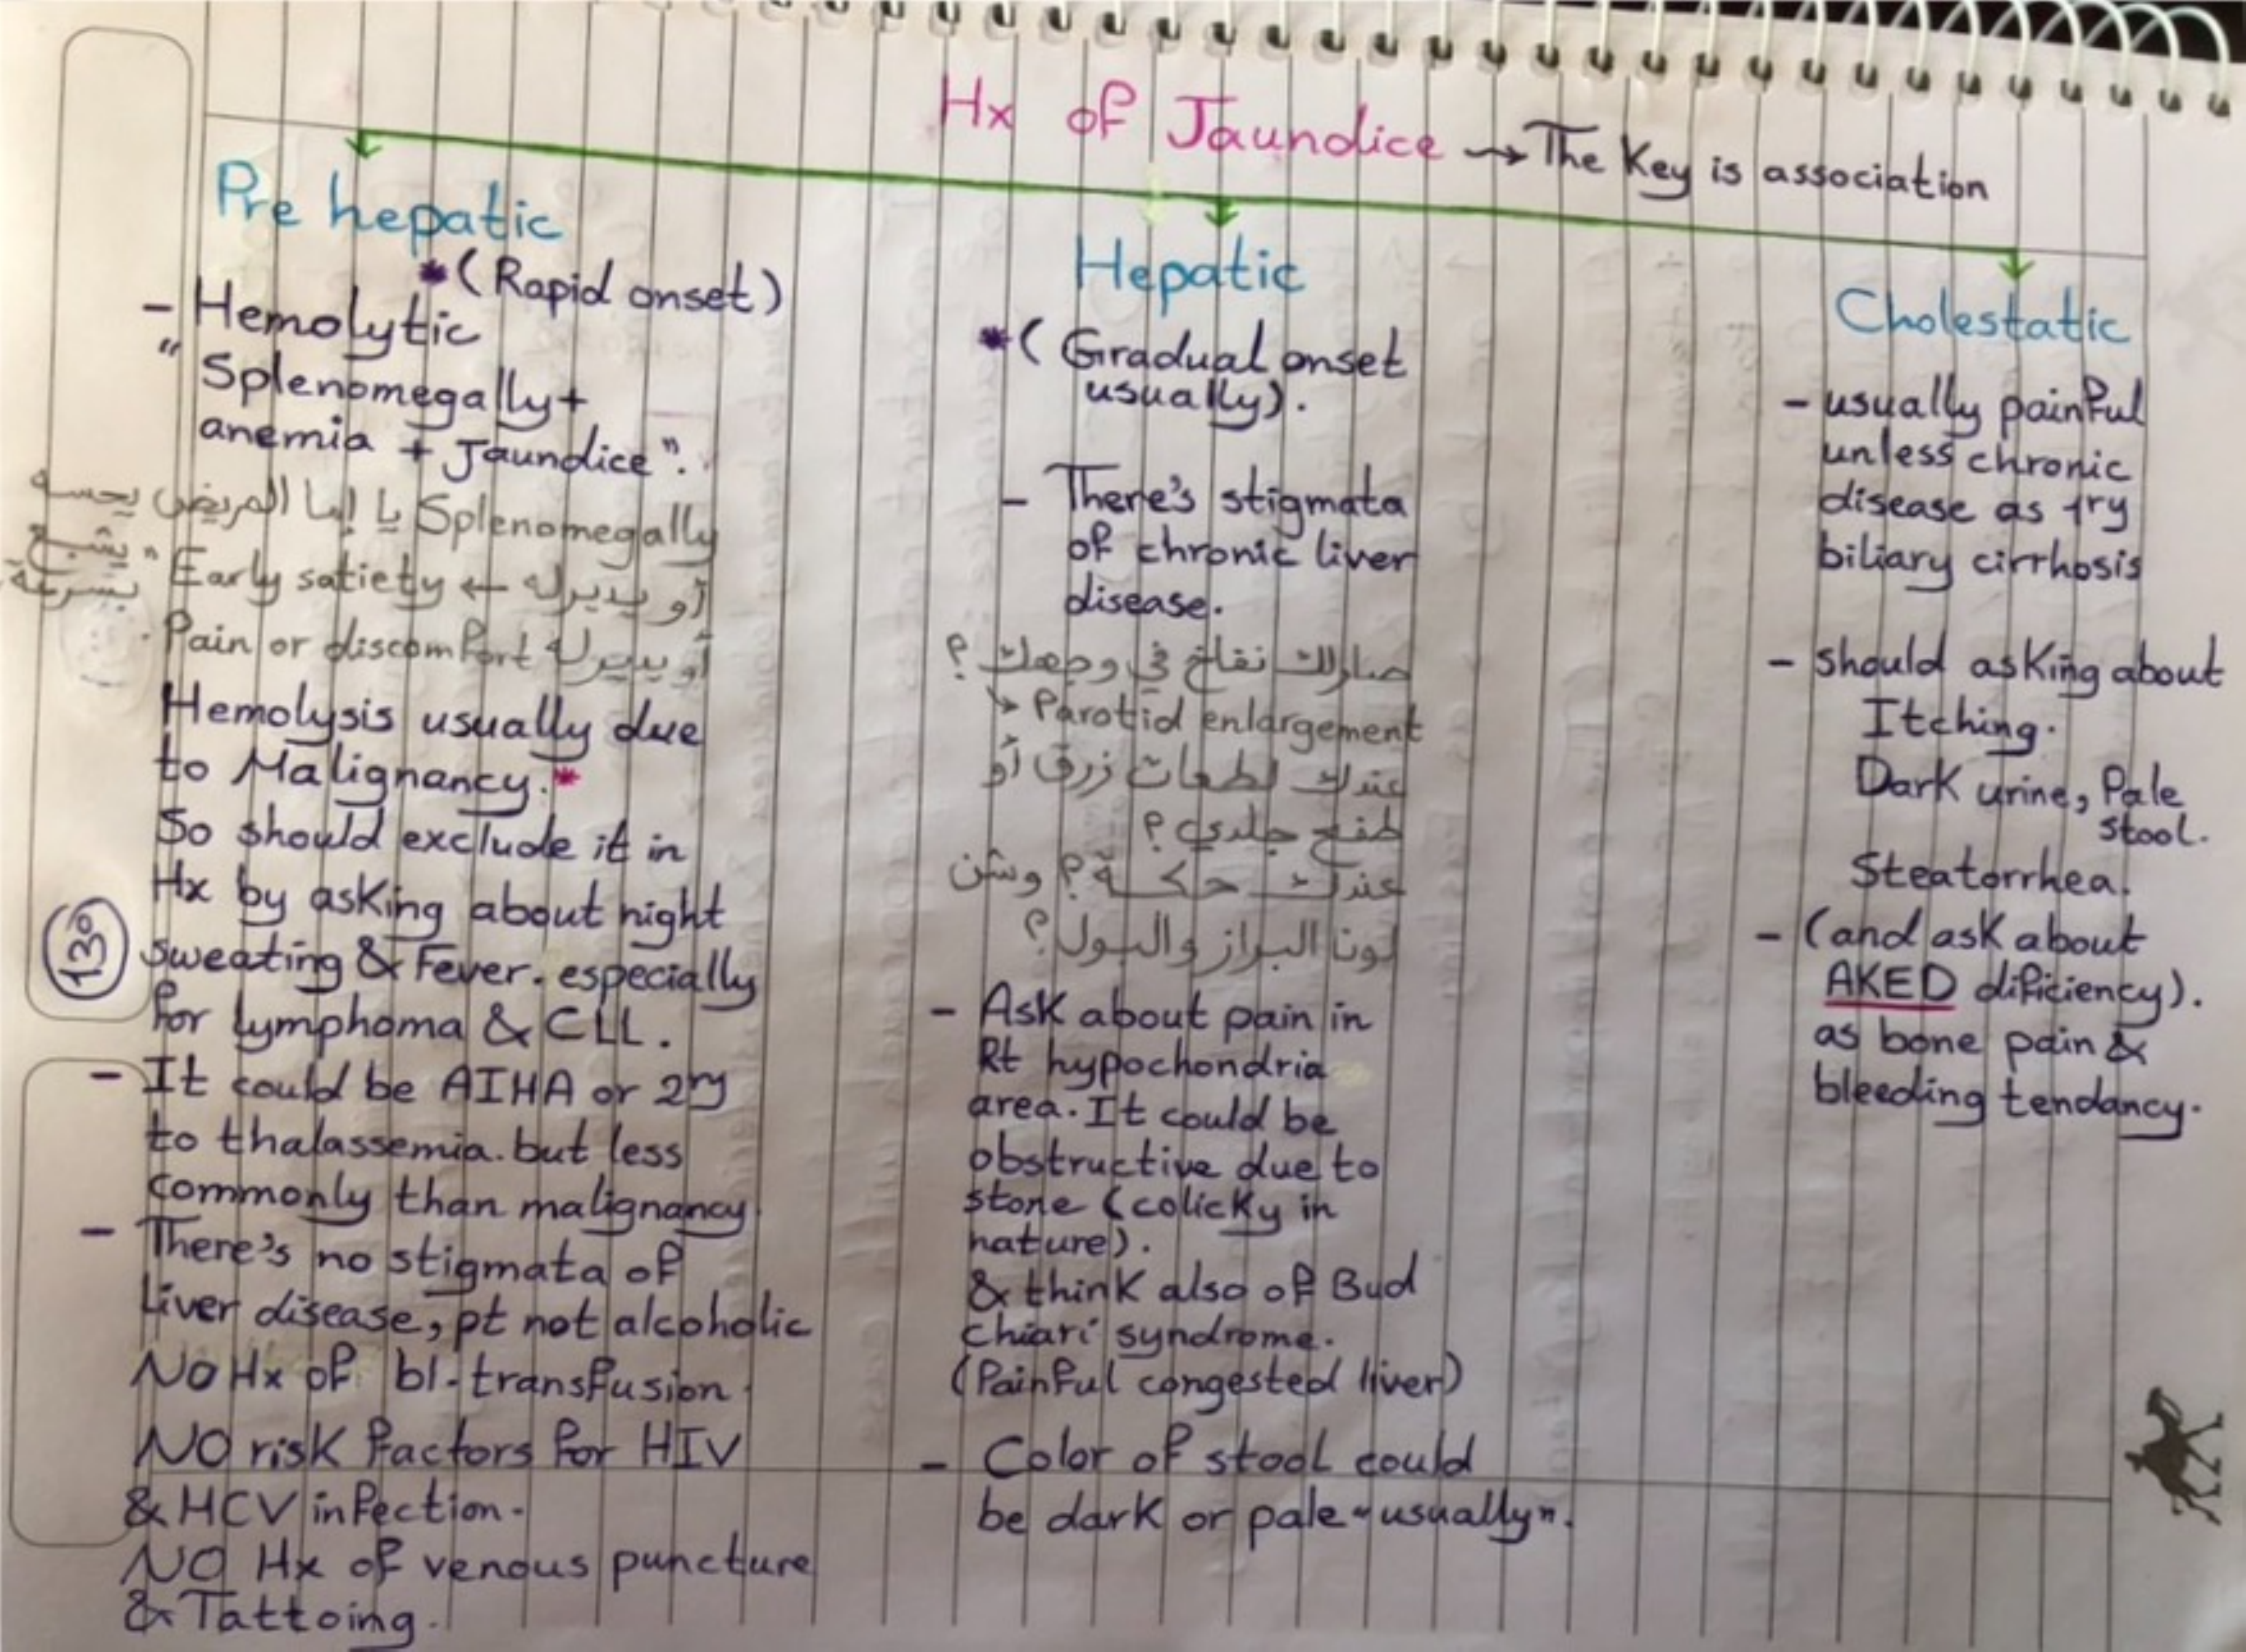 Hx of Jaundice → The Key is association
Pre hepatic
*(Rapid onset)
- Hemolytic
" Splenomegally +
anemia + Jaundice".
Splenomegally يا إما المريض يحسه
أو يديرله ← Early satiety " يشبع
بسرعة
أو يديرله Pain or discomfort.
Hemolysis usually due
to Malignancy.*
So should exclude it in
Hx by asking about night
sweating & Fever. especially
for lymphoma & CLL.
- It could be AIHA or 2ry
to thalassemia. but less
commonly than malignancy.
- There's no stigmata of
Liver disease, pt not alcoholic
NO Hx of bl. transfusion.
NO risk factors for HIV
& HCV infection.
NO Hx of venous puncture
& Tattoing.
130
Hepatic
*( Gradual onset
usually).
- There's stigmata
of chronic liver
disease.
صارلك نفاخ في وجهك ؟
↳ Parotid enlargement
عندك لطعات زرق أو
طفح جلدي ؟
عندك حكة ؟ وشن
لونا البراز والبول ؟
- Ask about pain in
Rt hypochondria
area. It could be
obstructive due to
stone (colicky in
nature).
& think also of Bud
chiari syndrome.
(Painful congested liver)
- Color of stool could
be dark or pale "usually".
Cholestatic
- usually painful
unless chronic
disease as 1ry
biliary cirrhosis
- should asking about
Itching.
Dark urine, Pale
stool.
Steatorrhea.
- (and ask about
AKED dificiency).
as bone pain &
bleeding tendancy.